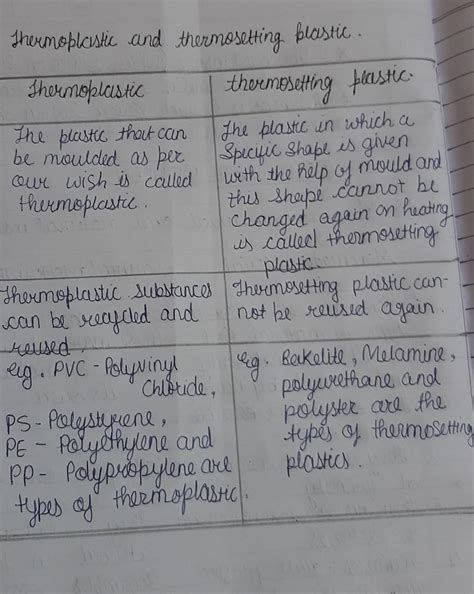 Thermoplastic and thermosetting plastic.
Thermoplastic
The plastic that can
be moulded as per
our wish is called
thermoplastic.
Thermoplastic substances
can be recycled and
reused.
eg. PVC - Polyvinyl
Chloride,
PS - Polystyrene,
PE - Polyethylene and
PP - Polypropylene are
types of thermoplastic.
thermosetting plastic.
The plastic in which a
specific shape is given
with the help of mould and
this shape cannot be
changed again on heating
is called thermosetting
plastic.
Thermosetting plastic can-
not be reused again.
eg. Bakelite, Melamine,
polyurethane and
polyster are the
types of thermosetting
plastics.